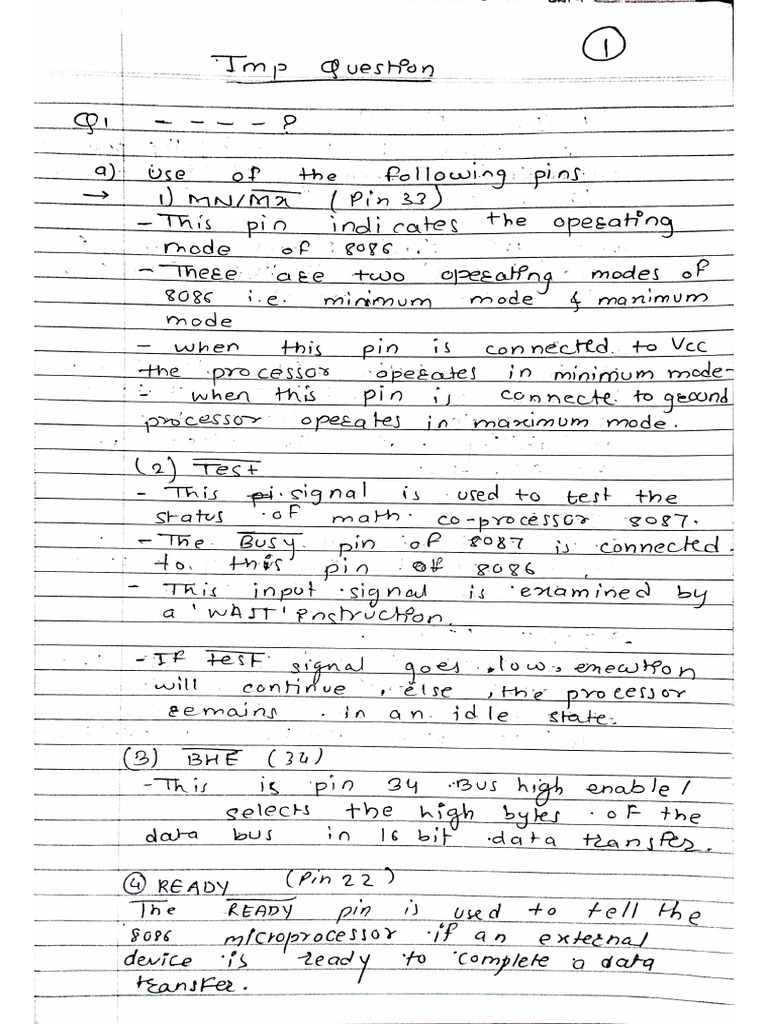 1
Imp Question
Q1 - - - - ?
a) Use of the following pins.
→ 1) MN/M̅X̅ (Pin 33)
- This pin indicates the operating
mode of 8086.
- These are two operating modes of
8086 i.e. minimum mode & maximum
mode
- when this pin is connected to Vcc
the processor operates in minimum mode-
- when this pin is connecte to ground
processor operates in maximum mode.
(2) T̅e̅s̅t̅
- This signal is used to test the
status of math co-processor 8087.
- The B̅U̅S̅Y̅ pin of 8087 is connected
to this pin of 8086
- This input signal is examined by
a 'WAIT' instruction.
- If T̅e̅s̅t̅ signal goes low, execution
will continue, else, the processor
remains in an idle state.
(3) B̅H̅E̅ (34)
- This is pin 34 Bus high enable /
selects the high bytes of the
data bus in 16 bit data transfer.
④ READY (Pin 22)
The R̅E̅A̅D̅Y̅ pin is used to tell the
8086 microprocessor if an external
device is ready to complete a data
transfer.